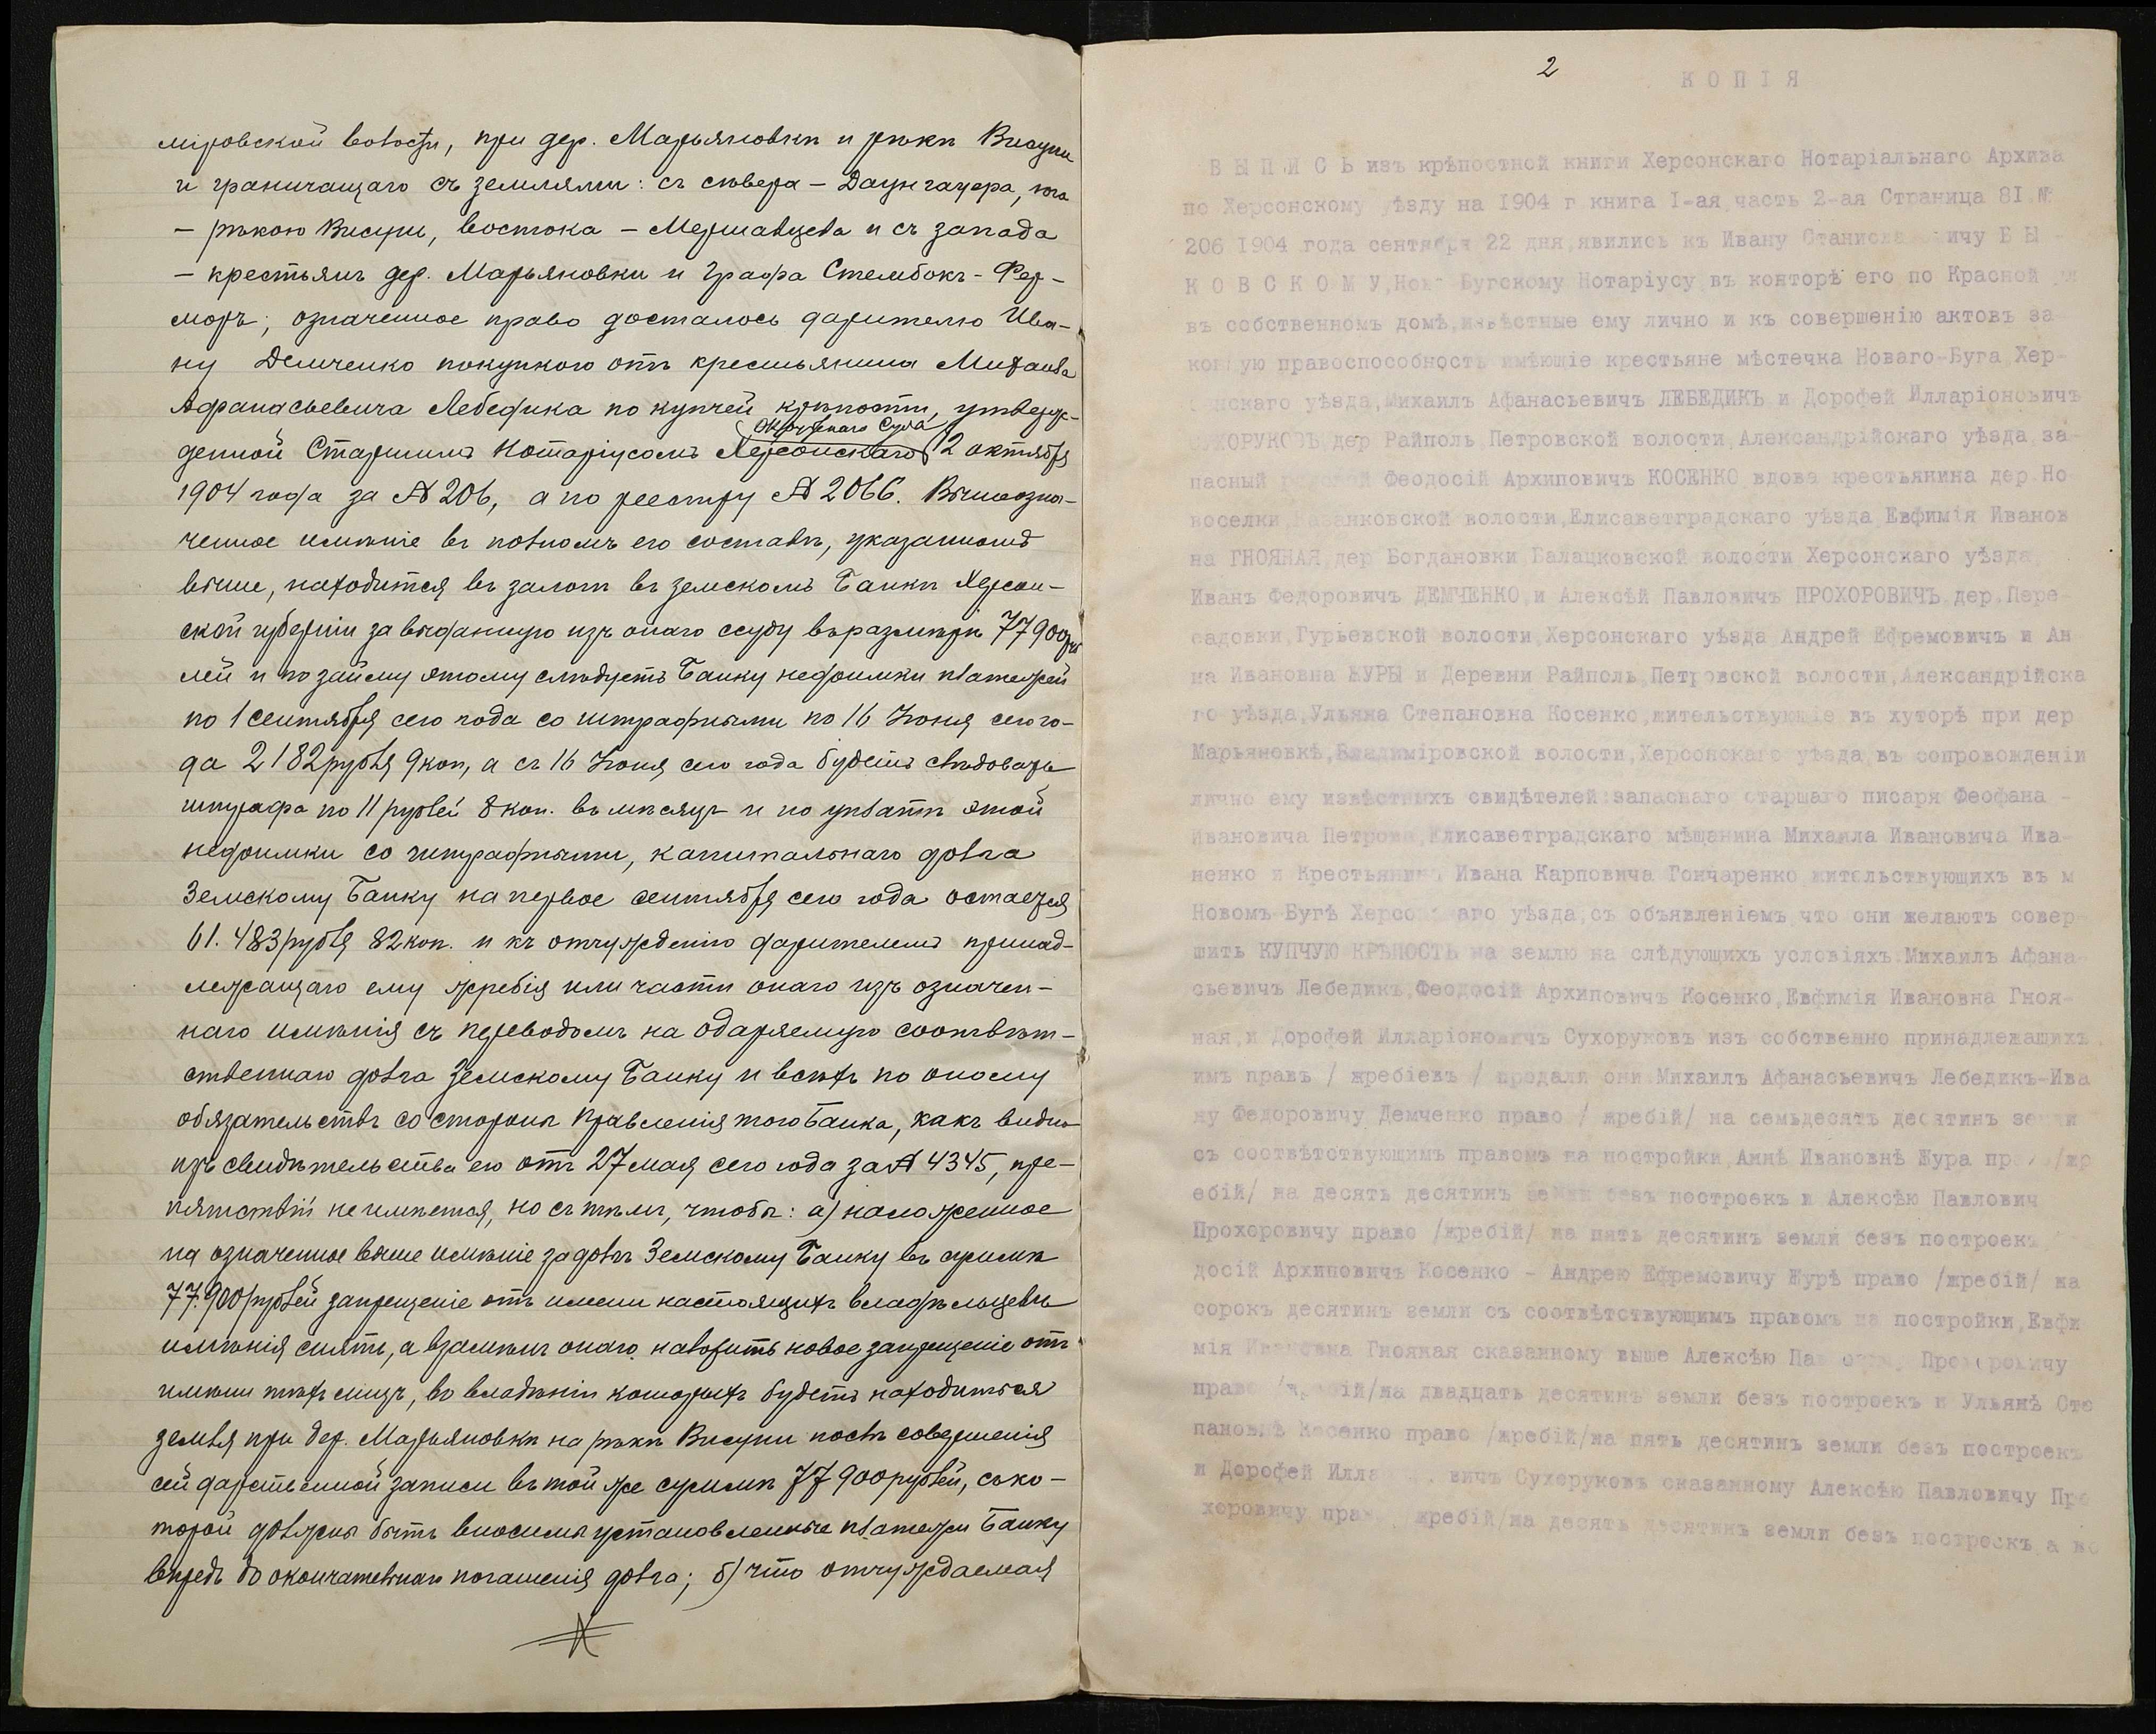 міровской волости, при дер. Марьяновкѣ и рѣкѣ Висуни
и граничащаго съ землями: съ сѣвера – Даунгауера, юга
– рѣкою Висуни, востока – Мершавцева и съ запада
– крестьянъ дер. Марьяновки и Графа Стембокъ-Фер-
моръ; означенное право досталось дарителю Ива-
ну Демченко покупкою отъ крестьянина Михаила
Афанасьевича Лебедика по купчей крѣпости, утверж-
Окружнаго Суда
денной Старшимъ Нотаріусомъ Херсонскаго 12 октября
1904 года за № 206, а по реестру № 2066. Вышеозна-
ченное имѣніе въ полномъ его составѣ, указанномъ
выше, находится въ залогѣ въ Земскомъ Банкѣ Херсон-
ской губерніи за выданную изъ онаго ссуду въ размѣрѣ 77900 руб
лей и по займу этому слѣдуетъ Банку недоимки платежей
по 1 сентября сего года со штрафными по 16 Іюня сего го-
да 2182 рубля 9 коп, а съ 16 Іюня сего года будетъ слѣдовать
штрафа по 11 рублей 8 коп. въ мѣсяцъ и по уплатѣ этой
недоимки со штрафными, капитальнаго долга
Земскому Банку на первое сентября сего года остается
61.483 рубля 82 коп. и къ отчужденію дарителемъ принад-
лежащаго ему жребія или части онаго изъ означен-
наго имѣнія съ переводомъ на одаряемую соотвѣт-
ственнаго долга Земскому Банку и всѣхъ по оному
обязательствъ со стороны Правленія того Банка, какъ видно
изъ свидѣтельства его отъ 27 мая сего года за № 4345, пре-
пятствій не имѣется, но съ тѣмъ, чтобы: а) наложенное
на означенное выше имѣніе за долгъ Земскому Банку въ суммѣ
77.900 рублей запрещеніе отъ имени настоящихъ владѣльцевъ
имѣнія снять, а взамѣнъ онаго наложить новое запрещеніе отъ
имени тѣхъ лицъ, во владѣніи которыхъ будетъ находиться
земля при дер. Марьяновкѣ на рѣкѣ Висуни послѣ совершенія
сей дарственной записи въ той же суммѣ 77900 рублей, съ ко-
торой должны быть вносимы установленные платежи Банку
впредь до окончательнаго погашенія долга; б) что отчуждаемая
2
КОПІЯ
ВЫПИСЬ изъ крѣпостной книги Херсонскаго Нотаріальнаго Архива
по Херсонскому уѣзду на 1904 г книга I-ая часть 2-ая Страница 81 №
206 1904 года сентября 22 дня, явились къ Ивану Станиславовичу БЫ
КОВСКОМУ, Ново-Бугскому Нотаріусу въ конторѣ его по Красной
въ собственномъ домѣ, извѣстные ему лично и къ совершенію актовъ за
конную правоспособность имѣющіе крестьяне мѣстечка Новаго-Буга, Хер-
сонскаго уѣзда, Михаилъ Афанасьевичъ ЛЕБЕДИКЪ и Дорофей Илларіоновичъ
СУХОРУКОВЪ дер Райполь Петровской волости, Александрійскаго уѣзда, за-
пасный рядовой Феодосій Архиповичъ КОСЕНКО вдова крестьянина дер. Но-
воселки, Казанковской волости, Елисаветградскаго уѣзда Евфимія Иванов
на ГНОЯНАЯ, дер Богдановки Балацковской волости Херсонскаго уѣзда,
Иванъ Федоровичъ ДЕМЧЕНКО, и Алексѣй Павловичъ ПРОХОРОВИЧЪ дер. Пере-
садовки, Гурьевской волости, Херсонскаго уѣзда Андрей Ефремовичъ и Ан
на Ивановна ЖУРЫ и Деревни Райполь, Петровской волости, Александрійска
го уѣзда, Ульяна Степановна Косенко, жительствующіе въ хуторѣ при дер
Марьяновкѣ, Владиміровской волости, Херсонскаго уѣзда, въ сопровожденіи
лично ему извѣстныхъ свидѣтелей: запаснаго старшаго писаря Феофана -
Ивановича Петрова, Елисаветградскаго мѣщанина Михаила Ивановича Ива-
ненко и Крестьянина Ивана Карповича Гончаренко жительствующихъ въ м
Новомъ-Бугѣ Херсонскаго уѣзда, съ объявленіемъ, что они желаютъ совер-
шить КУПЧУЮ КРѢПОСТЬ на землю на слѣдующихъ условіяхъ: Михаилъ Афана-
сьевичъ Лебедикъ, Феодосій Архиповичъ Косенко, Евфимія Ивановна Гноя-
ная, и Дорофей Илларіоновичъ Сухоруковъ изъ собственно принадлежащихъ
имъ правъ / жребіевъ / продали они: Михаилъ Афанасьевичъ Лебедикъ-Ива
ну Федоровичу Демченко право / жребій/ на семьдесятъ десятинъ земли
съ соотвѣтствующимъ правомъ на постройки, Аннѣ Ивановнѣ Жура право/жр
ебій/ на десять десятинъ земли безъ построекъ и Алексѣю Павлович
Прохоровичу право /жребій/ на пять десятинъ земли безъ построекъ
досій Архиповичъ Косенко - Андрею Ефремовичу Журѣ право /жребій/ на
сорокъ десятинъ земли съ соотвѣтствующимъ правомъ на постройки, Евфи
мія Ивановна Гнояная сказанному выше Алексѣю Павловичу Прохоровичу
право /жребій/на двадцать десятинъ земли безъ построекъ и Ульянѣ Сте
пановнѣ Косенко право /жребій/на пять десятинъ земли безъ построекъ
и Дорофей Илларіоновичъ Сухоруковъ сказанному Алексѣю Павловичу Про
хоровичу право /жребій/на десять десятинъ земли безъ построекъ, а во